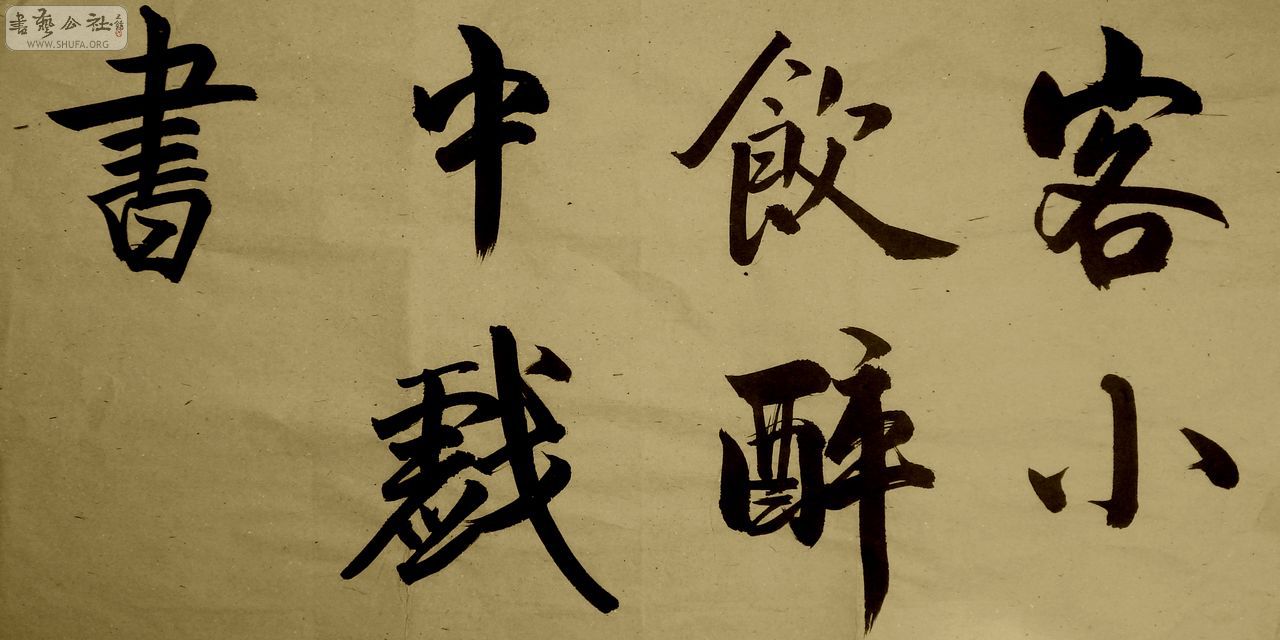 客小
飲醉
中戲
書
書藝公社
WWW.SHUFA.ORG